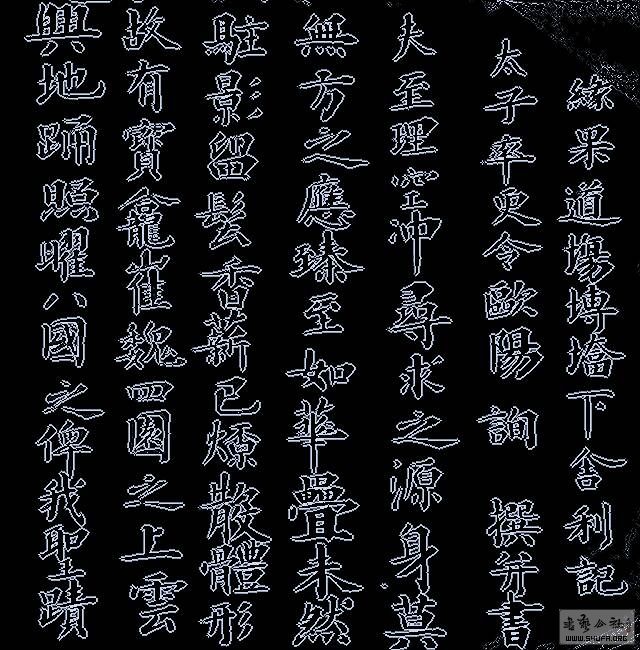 緣果道塲塼墖下舍利記
太子率更令歐陽詢 撰并書
夫至理空沖尋求之源身莫
無方之應臻至如華疊未然
駐影留髮香薪已燎散體形
故有寶龕崔魏四園之上雲
興地踊照曜八國之俾我聖蹟